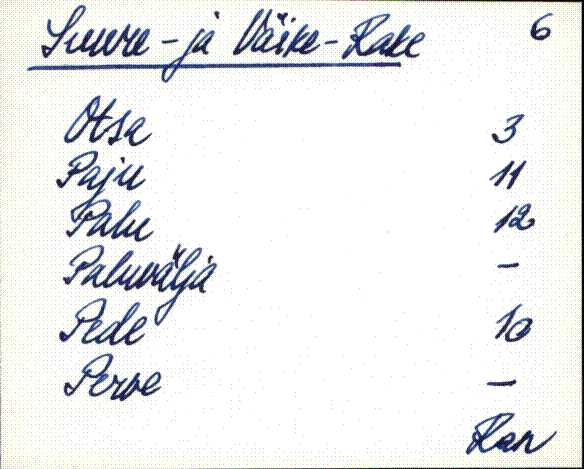 Suure- ja Väike-Rake 6
Otsa 3
Paju 11
Palu 12
Paluvälja –
Pede 10
Perve –
Ran